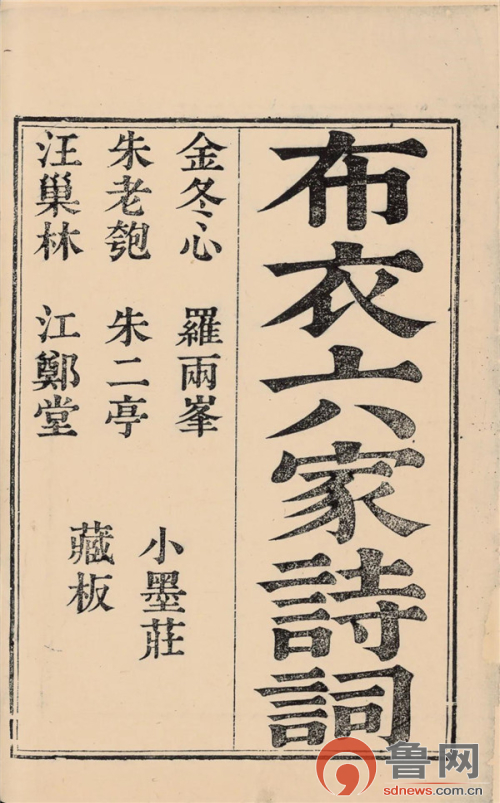 布衣六家詩詞
金冬心 羅兩峯
朱老匏 朱二亭
汪巢林 江鄭堂
小墨莊
藏板
鲁网
sdnews.com.cn